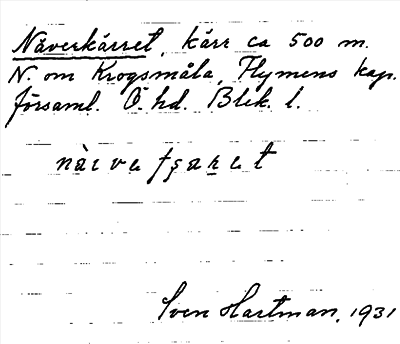 Näverkärret, kärr ca 500 m.
N. om Krogsmåla, Flymens kap.
församl. Ö. hd. Blek. l.
Sven Hartman, 1931